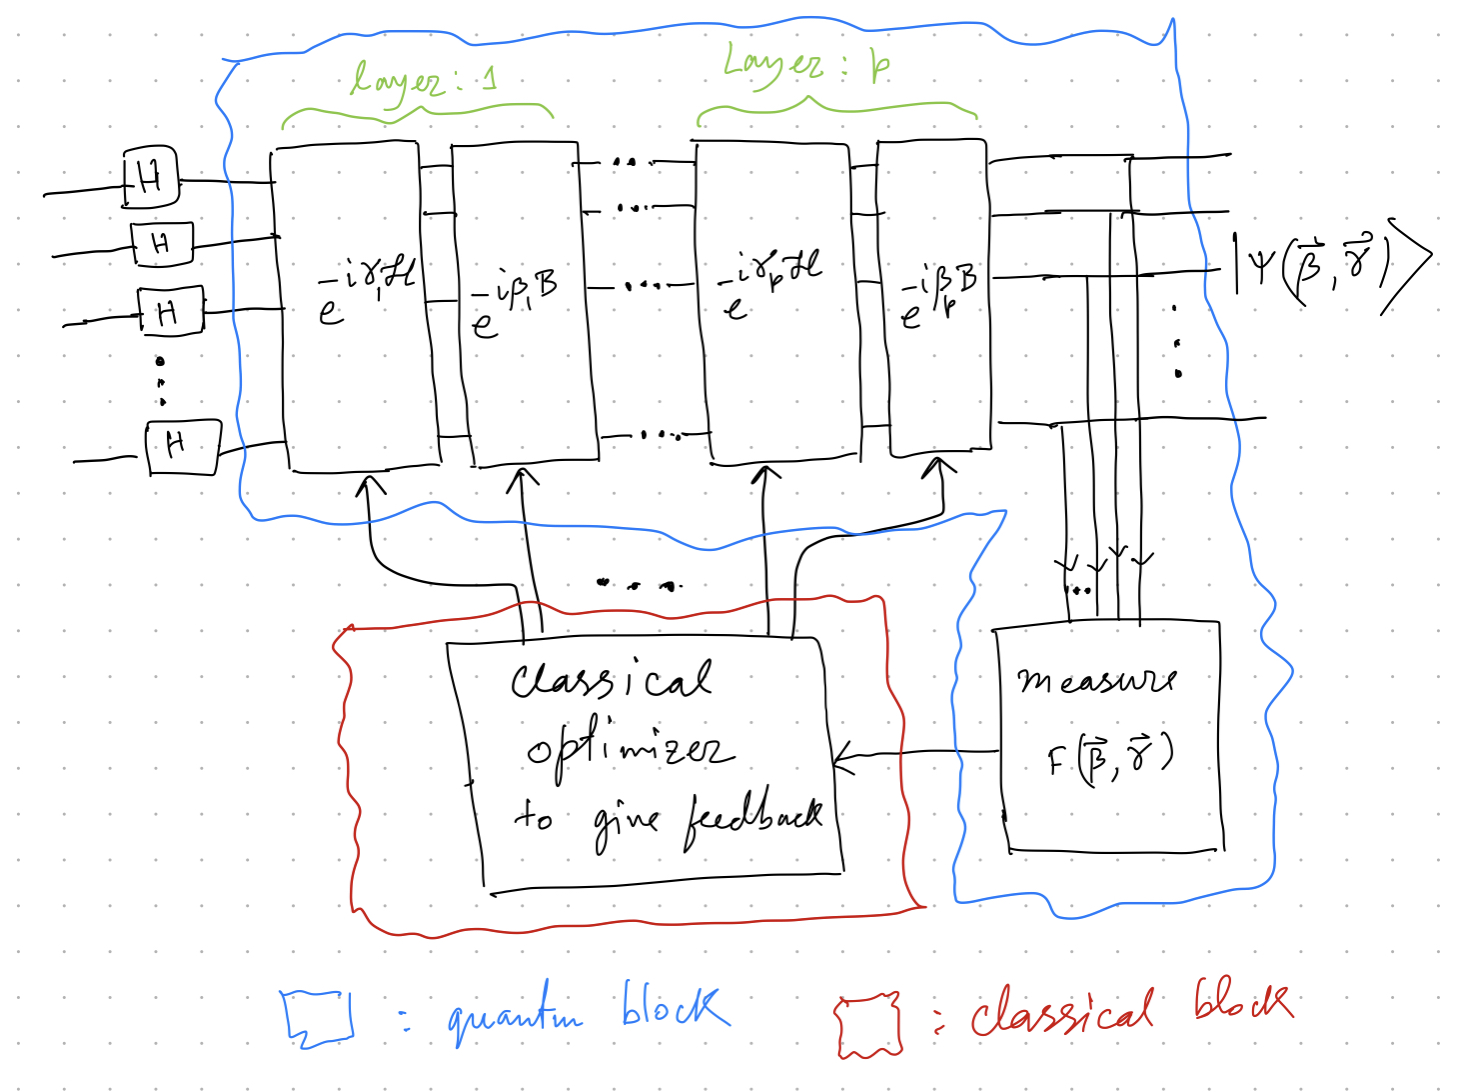 Layer: 1
Layer: p
H
H
H
H
e^{-iγ_1 ℋ}
e^{-iβ_1 B}
e^{-iγ_p ℋ}
e^{-iβ_p B}
|Ψ(β⃗, γ⃗)⟩
classical
optimizer
to give feedback
measure
F(β⃗, γ⃗)
: quantm block
: classical block